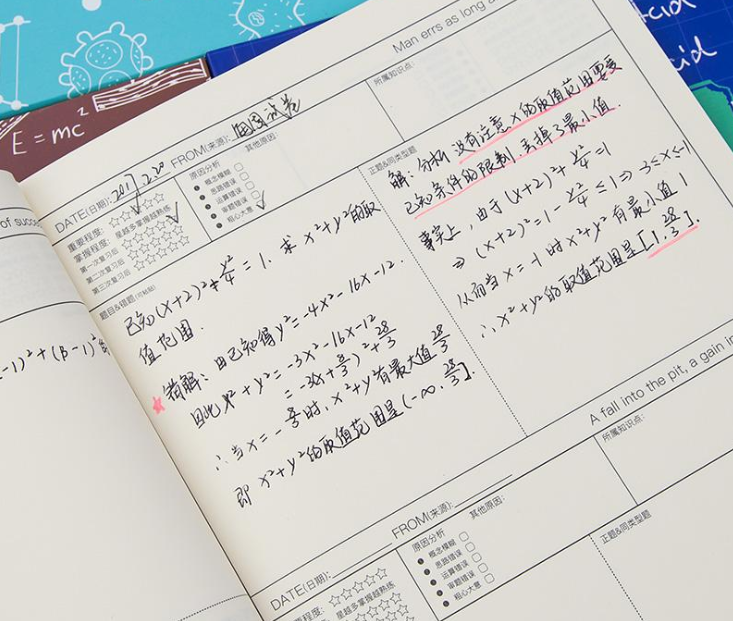 cid
cid
E = mc²
Man errs as long a
of succe
-1)² + (B-1)²
DATE(日期): 2017.2.20 FROM(来源): 周周试卷
重要程度: ☆☆☆☆☆
掌握程度: 星越多掌握越熟练
第一次复习后 ☆☆☆☆☆
第二次复习后 ☆☆☆☆☆
第三次复习后 ☆☆☆☆☆
原因分析
概念模糊
思路错误
运算错误
审题错误 ✓
粗心大意
其他原因:
所属知识点:
题目&错题(可粘贴)
已知(x+2)²+y²/4=1. 求x²+y²的取
值范围.
错解: 由已知得y²=-4x²-16x-12.
因此x²+y²=-3x²-16x-12
=-3(x+8/3)²+28/3
∴当x=-8/3时, x²+y²有最大值28/3
即x²+y²的取值范围是(-∞, 28/3].
正题&同类型题
解: 分析: 没有注意x的取值范围要受
已知条件的限制, 丢掉了最小值.
事实上, 由于(x+2)²+y²/4=1
⇒ (x+2)²=1-y²/4≤1⇒-3≤x≤-1
从而当x=-1时x²+y²有最小值1
∴x²+y²的取值范围是[1, 28/3].
A fall into the pit, a gain in
DATE(日期): FROM(来源):
要程度: ☆☆☆☆☆
程度: 星越多掌握越熟练
原因分析
概念模糊
思路错误
运算错误
审题错误
粗心大意
其他原因:
所属知识点:
正题&同类型题